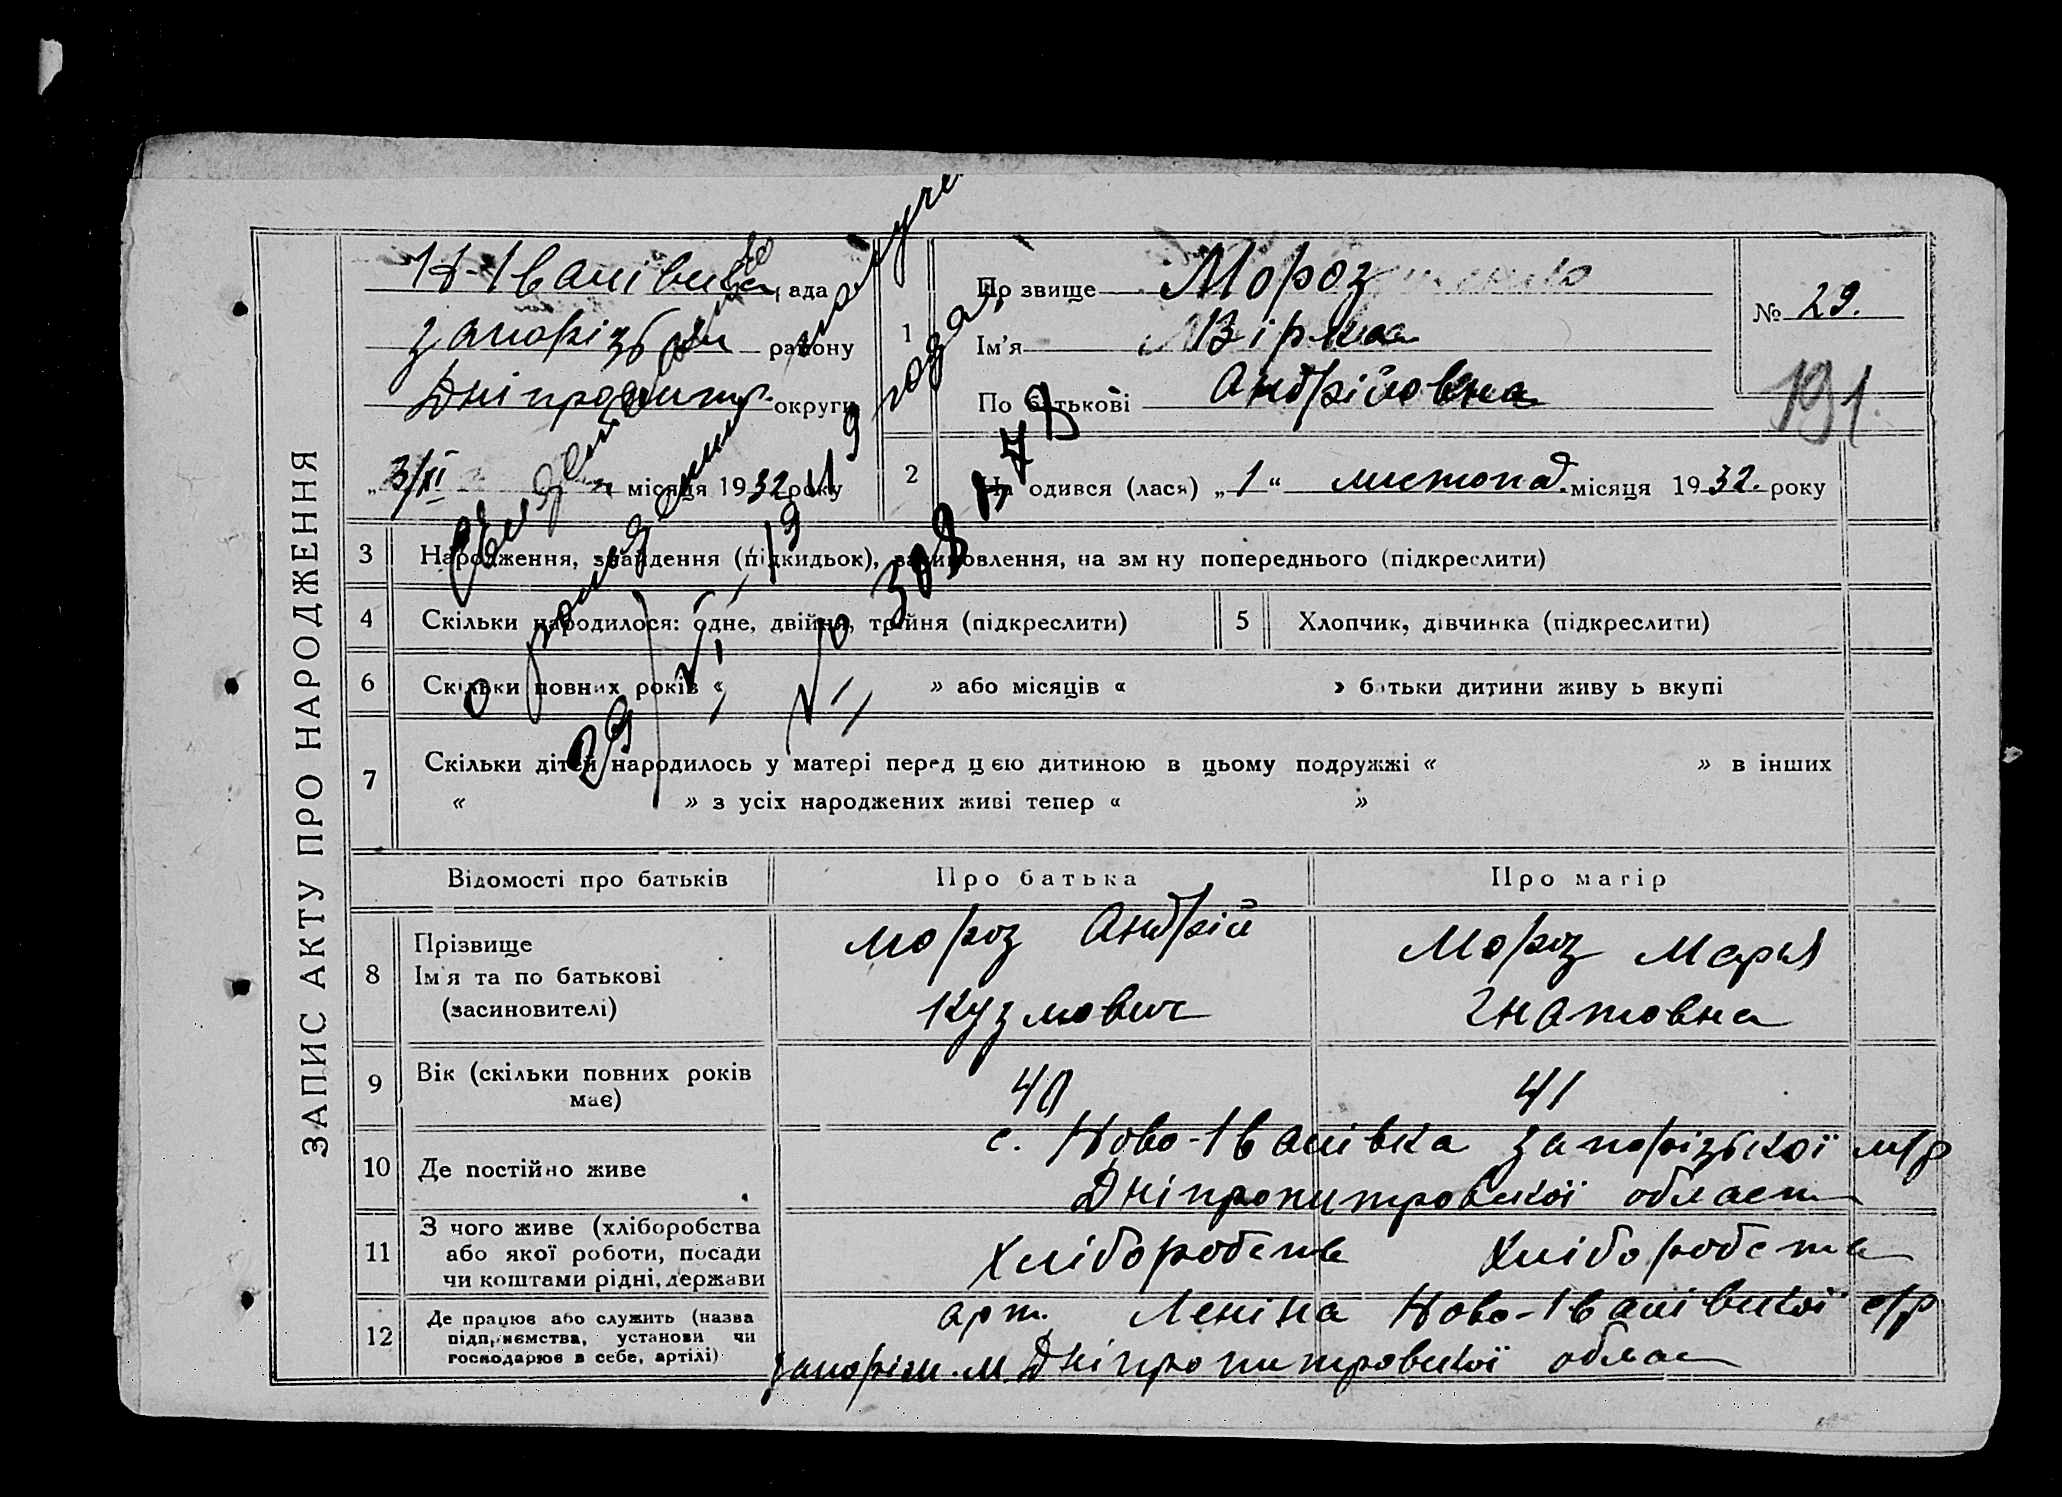 ЗАПИС АКТУ ПРО НАРОДЖЕННЯ
Н-Іванівська рада
Запорізьки району
Дніпропитр. округи
„3/XI місяця 1932 року
1
Прозвище Мороз
Ім'я Вірка
По батькові Андрійовна
№ 29.
191
2
Народився (лася) „1“ листопад. місяця 1932. року
3 Народження, знайдення (підкидьок), засиновлення, на зміну попереднього (підкреслити)
4 Скільки народилося: одне, двійня, трійня (підкреслити)
5 Хлопчик, дівчинка (підкреслити)
6 Скільки повних років « » або місяців « » батьки дитини живуть вкупі
7 Скільки дітей народилось у матері перед цією дитиною в цьому подружжі « » в інших
« » з усіх народжених живі тепер « »
Свидетельство
о рождении получе
29/VI 1949 года.
№ 308478
Відомості про батьків Про батька Про матір
8 Прізвище
Ім'я та по батькові
(засиновителі)
Мороз Андрій
Кузмович
Мороз Марья
Гнатовна
9 Вік (скільки повних років
має)
40 41
10 Де постійно живе
с. Ново-Іванівка Запорізької м/р
Дніпропитровської област
11 З чого живе (хліборобства
або якої роботи, посади
чи коштами рідні, держави
Хліборобств Хліборобства
12 Де працює або служить (назва
підприємства, установи чи
господарює в себе, артілі)
арт. Леніна Ново-Іванівської с/р
Запоріж. м. Дніпропитровської облас